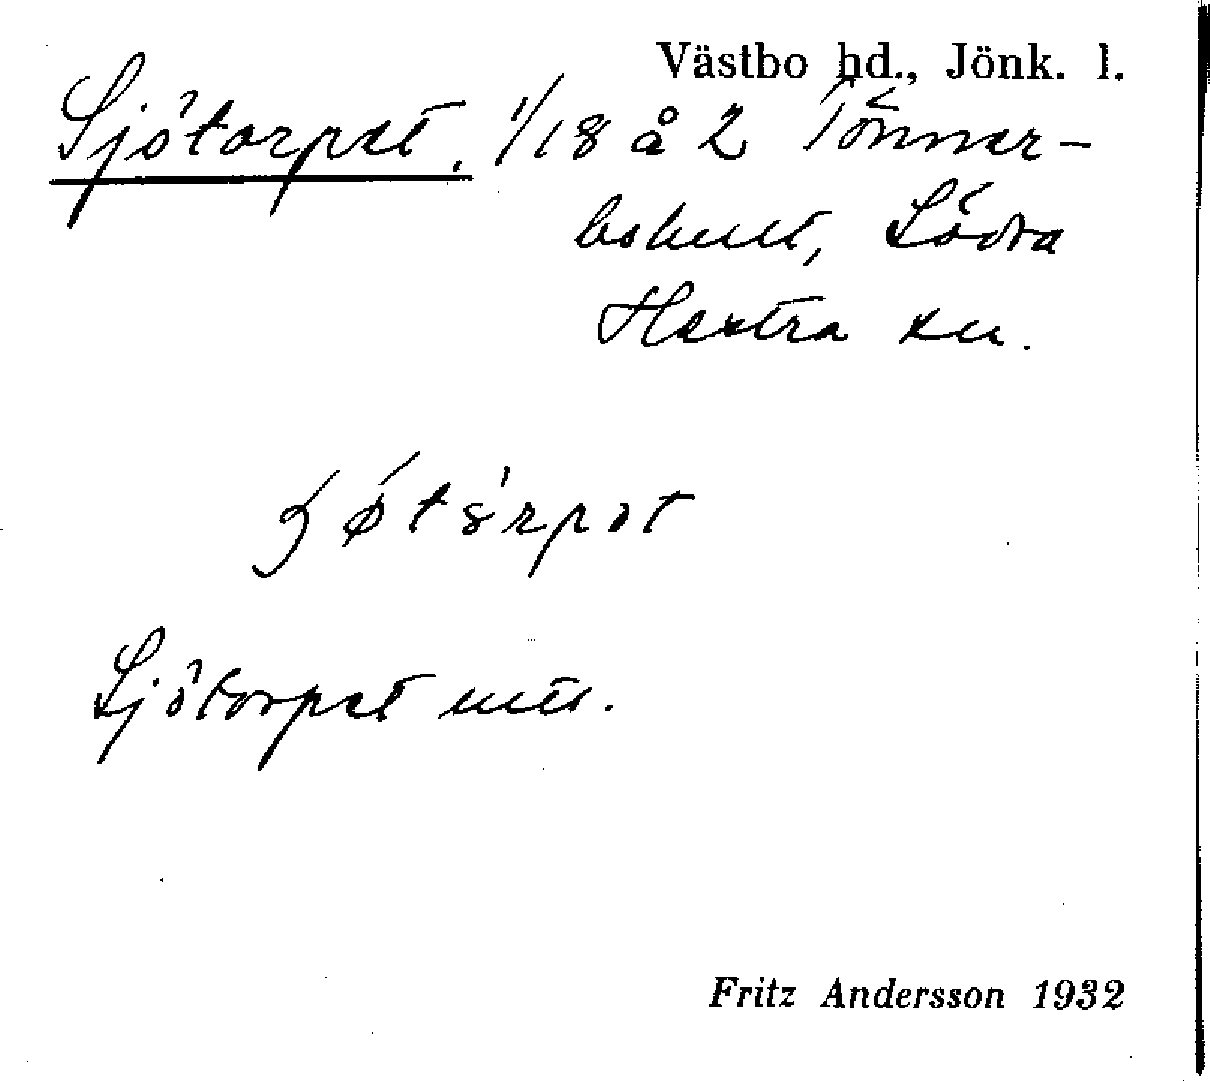 Västbo hd., Jönk. l.
Sjötorpet. 1/18 å 2 Tönner-
bohult, Södra
Hestra sn.
Sjötorpet uttr.
Fritz Andersson 1932